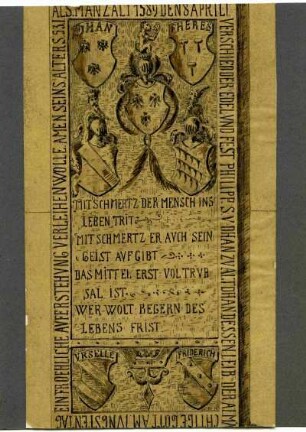 ALS MAN ZALT 1589 DEN 8 APRILI
VERSCHEIDT DER EDEL VND FEST PHILIPPE
ALTO
DER ALM
ECHTIGE GOTT AM IVNGSTEN TAG
EIN FROEHLICHE AVFERSTEHVNG VERLEIHEN WOLLE AMEN SEINS ALTERS 53
HAN
HERES
MIT SCHMERTZ DER MENSCH INS
LEBEN TRIT
MIT SCHMERTZ ER AVCH SEIN
GEIST AVFGIBT
DAS MITTEL ERST VOL TRVB
SAL IST
WER WOLT BEGERN DES
LEBENS FRIST
VRSELLE
FRIDERICH